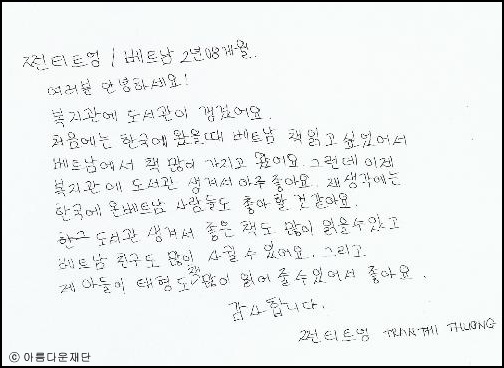 쩐티트엉 / 베트남 2년08개월..
여러분 안녕하세요!
복지관에 도서관이 생겼어요.
처음에는 한국에 왔을때 베트남 책 읽고 싶었어서
베트남에서 책 많이 가지고 왔어요. 그런데 이제
복지관에 도서관 생겨서 아주 좋아요. 재 생각에는
한국에 온 베트남 사람들도 좋아 할 것 같아요.
도서관 생겨서 좋은 책도 많이 읽을 수 있고
베트남 친구도 많이 사귈 수 있어요. 그리고
제 아들이 태형도 책 많이 읽어 줄 수 있어서 좋아요.
감사합니다.
쩐티트엉 TRAN THI THUONG
ⓒ 아름다운재단